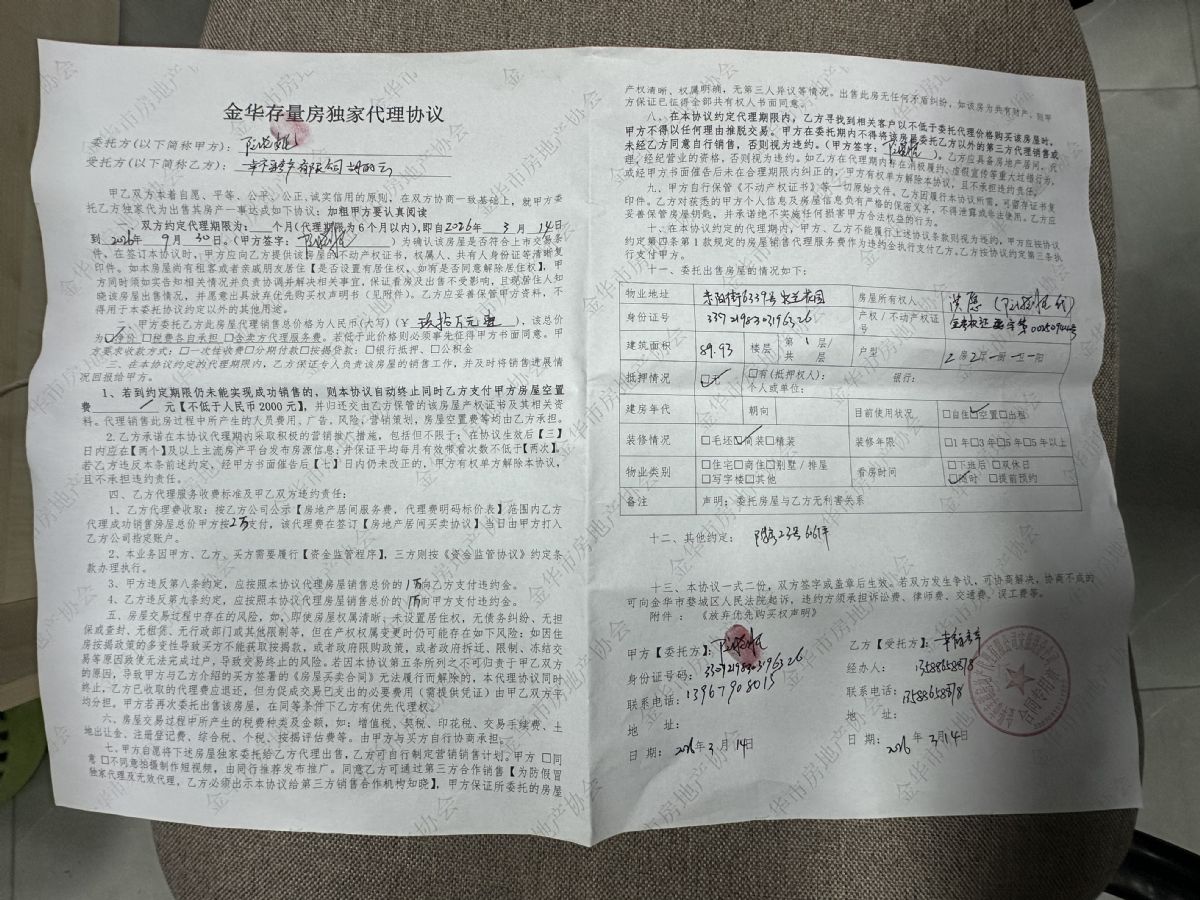 金华存量房独家代理协议
委托方(以下简称甲方)：
受托方(以下简称乙方)：
甲乙双方本着自愿、平等、公平、公正、诚实信用的原则，在双方协商一致基础上，就甲方委
托乙方独家代为出售其房产一事达成如下协议：加粗甲方要认真阅读
一、双方约定代理期限为： 个月(代理期限为6个月以内)，即自2026年 3 月 14日
到 2026年 9 月 30日。(甲方签字： )为确认该房屋是否符合上市交易条
件，在签订本协议时，甲方应向乙方提供该房屋的不动产权证书，权属人、共有人身份证等清晰复
印件。如本房屋尚有租客或者亲戚朋友居住【是否设置有居住权，如有是否同意解除居住权】，甲
方同时须如实告知相关情况并负责协调并解决相关事宜，保证看房及出售不受影响，且现居住人知
晓该房屋出售情况，并愿意出具放弃优先购买权声明书（见附件）。乙方应妥善保管甲方资料，不
得用于本委托协议约定以外的其他用途。
二、甲方委托乙方此房屋代理销售总价格为人民币(大写)(￥ 玖拾万元整 )，该总价
为☑净价 □税费各自承担 □含卖方代理服务费。若低于此价格则必须事先征得甲方书面同意。甲
方要求收款方式：□一次性收费□分期付款□按揭贷款：□银行抵押、□公积金
三、在本协议约定的代理期限内，乙方保证专人负责该房屋的销售工作，并及时将销售进展情
况回报给甲方。
1、若到约定期限仍未能实现成功销售的，则本协议自动终止同时乙方支付甲方房屋空置
费 / 元【不低于人民币 2000 元】，并归还交由乙方保管的该房屋产权证书及其相关资
料。代理销售此房过程中所产生的人员费用、广告、风险、营销策划，房屋空置费等均由乙方承担。
2.乙方承诺在本协议代理期内采取积极的营销推广措施，包括但不限于：在协议生效后【三】
日内应在【两个】及以上主流房产平台发布房源信息；并保证平均每月有效带看次数不低于【两次】。
若乙方违反本条前述约定，经甲方书面催告后【七】日内仍未改正的，甲方有权单方解除本协议，
且不承担违约责任。
四、乙方代理服务收费标准及甲乙双方违约责任：
1、乙方代理费收取：按乙方公司公示【房地产居间服务费，代理费明码标价表】范围内乙方
代理成功销售房屋总价甲方按2万支付，该代理费在签订【房地产居间买卖协议】当日由甲方打入
乙方公司指定账户。
2、本业务因甲方、乙方、买方需要履行【资金监管程序】，三方则按《资金监管协议》约定条
款办理执行。
3、甲方违反第八条约定，应按照本协议代理房屋销售总价的1万向乙方支付违约金。
4、乙方违反第九条约定，应按照本协议代理房屋销售总价的1万向甲方支付违约金。
五、房屋交易过程中存在的风险，如，即使房屋权属清晰、未设置居住权，无债务纠纷、无担
保或查封、无租赁、无行政部门或其他限制等，但在产权权属变更时仍可能存在如下风险：如因住
房按揭政策的多变性导致买方不能获取按揭款，或者政府限购政策，或者政府拆迁、限制、冻结交
易等原因致使无法完成过户，导致交易终止的风险。若因本协议第五条所列之不可归责于甲乙双方
的原因，导致甲方与乙方介绍的买方签署的《房屋买卖合同》无法履行而解除的，本代理协议同时
终止，乙方已收取的代理费应退还，但为促成交易已支出的必要费用（需提供凭证）由甲乙双方平
均分担。甲方若再次委托出售该房屋，在同等条件下乙方有优先代理权。
六、房屋交易过程中所产生的税费种类及金额，如：增值税、契税、印花税、交易手续费、土
地出让金、注册登记费、综合税、个税、按揭评估费等。由甲方与买方自行协商承担。
七、甲方自愿将下述房屋独家委托给乙方代理出售，乙方可自行制定营销销售计划。甲方 □同
意 □不同意拍摄制作短视频，由同行推荐发布推广。同意乙方可通过第三方合作销售【为防假冒
独家代理及无效代理，乙方必须出示本协议给第三方销售合作机构知晓】，甲方保证所委托的房屋
产权清晰、权属明确，无第三人异议等情况。出售此房无任何矛盾纠纷，如该房为共有财产，则甲
方保证已征得全部共有权人书面同意。
八、在本协议约定代理期限内，乙方寻找到相关客户以不低于委托代理价格购买该房屋时，
甲方不得以任何理由推脱交易。甲方在委托期内不得将该房屋委托乙方以外的第三方代理销售或
未经乙方同意自行销售，否则视为违约。(甲方签字： )。乙方应具备房地产居间，代
理，经纪营业的资格，否则视为违约。如乙方在代理期内存在消极履约、虚假宣传等重大过错行为，
或经甲方书面催告后未在合理期限内纠正的，甲方有权单方解除本协议，且不承担违约责任。
九、甲方自行保管《不动产权证书》等一切原始文件。乙方因履行本协议所需，可留存证书复
印件。乙方对获悉的甲方个人信息及房屋信息负有严格的保密义务，不得泄露或非法使用。乙方应
妥善保管房屋钥匙，并承诺绝不实施任何损害甲方合法权益的行为。
十、在本协议约定的代理期内，甲方、乙方不能履行上述协议条款则视为违约，甲方应按协议
约定第四条第 1 款规定的房屋销售代理服务费作为违约金执行支付乙方，乙方按协议约定第三条执
行支付甲方。
十一、委托出售房屋的情况如下：
物业地址 房屋所有权人 洪愿
身份证号 产权／不动产权证号
建筑面积 89.93 楼层 第 1 层/共 层 户型 2 房 2 厅 一 厨 一 卫 一 阳
抵押情况 ☑无 □有(抵押权人)： 个人或单位： 银行：
建房年代 朝向 目前使用状况 □自住☑空置□出租
装修情况 □毛坯☑简装□精装 装修年限 □1年□3年□5年□5年以上
物业类别 □住宅□商住□别墅／排屋 □写字楼□其他 看房时间 □下班后 □双休日 ☑随时 □提前预约
备注 声明：委托房屋与乙方无利害关系
十二、其他约定：
十三、本协议一式二份，双方签字或盖章后生效。若双方发生争议，可协商解决，协商不成的
可向金华市婺城区人民法院起诉，违约方须承担诉讼费、律师费、交通费、误工费等。
附件：《放弃优先购买权声明》
甲方【委托方】：
身份证号码：
联系电话：13967908015
地 址：
日 期：2026年 3月 14日
乙方【受托方】：
经办人： 13588658878
联系电话：13588658878
地 址：
日 期：2026 年 3月14日
合同专用章
金华市房地产协会